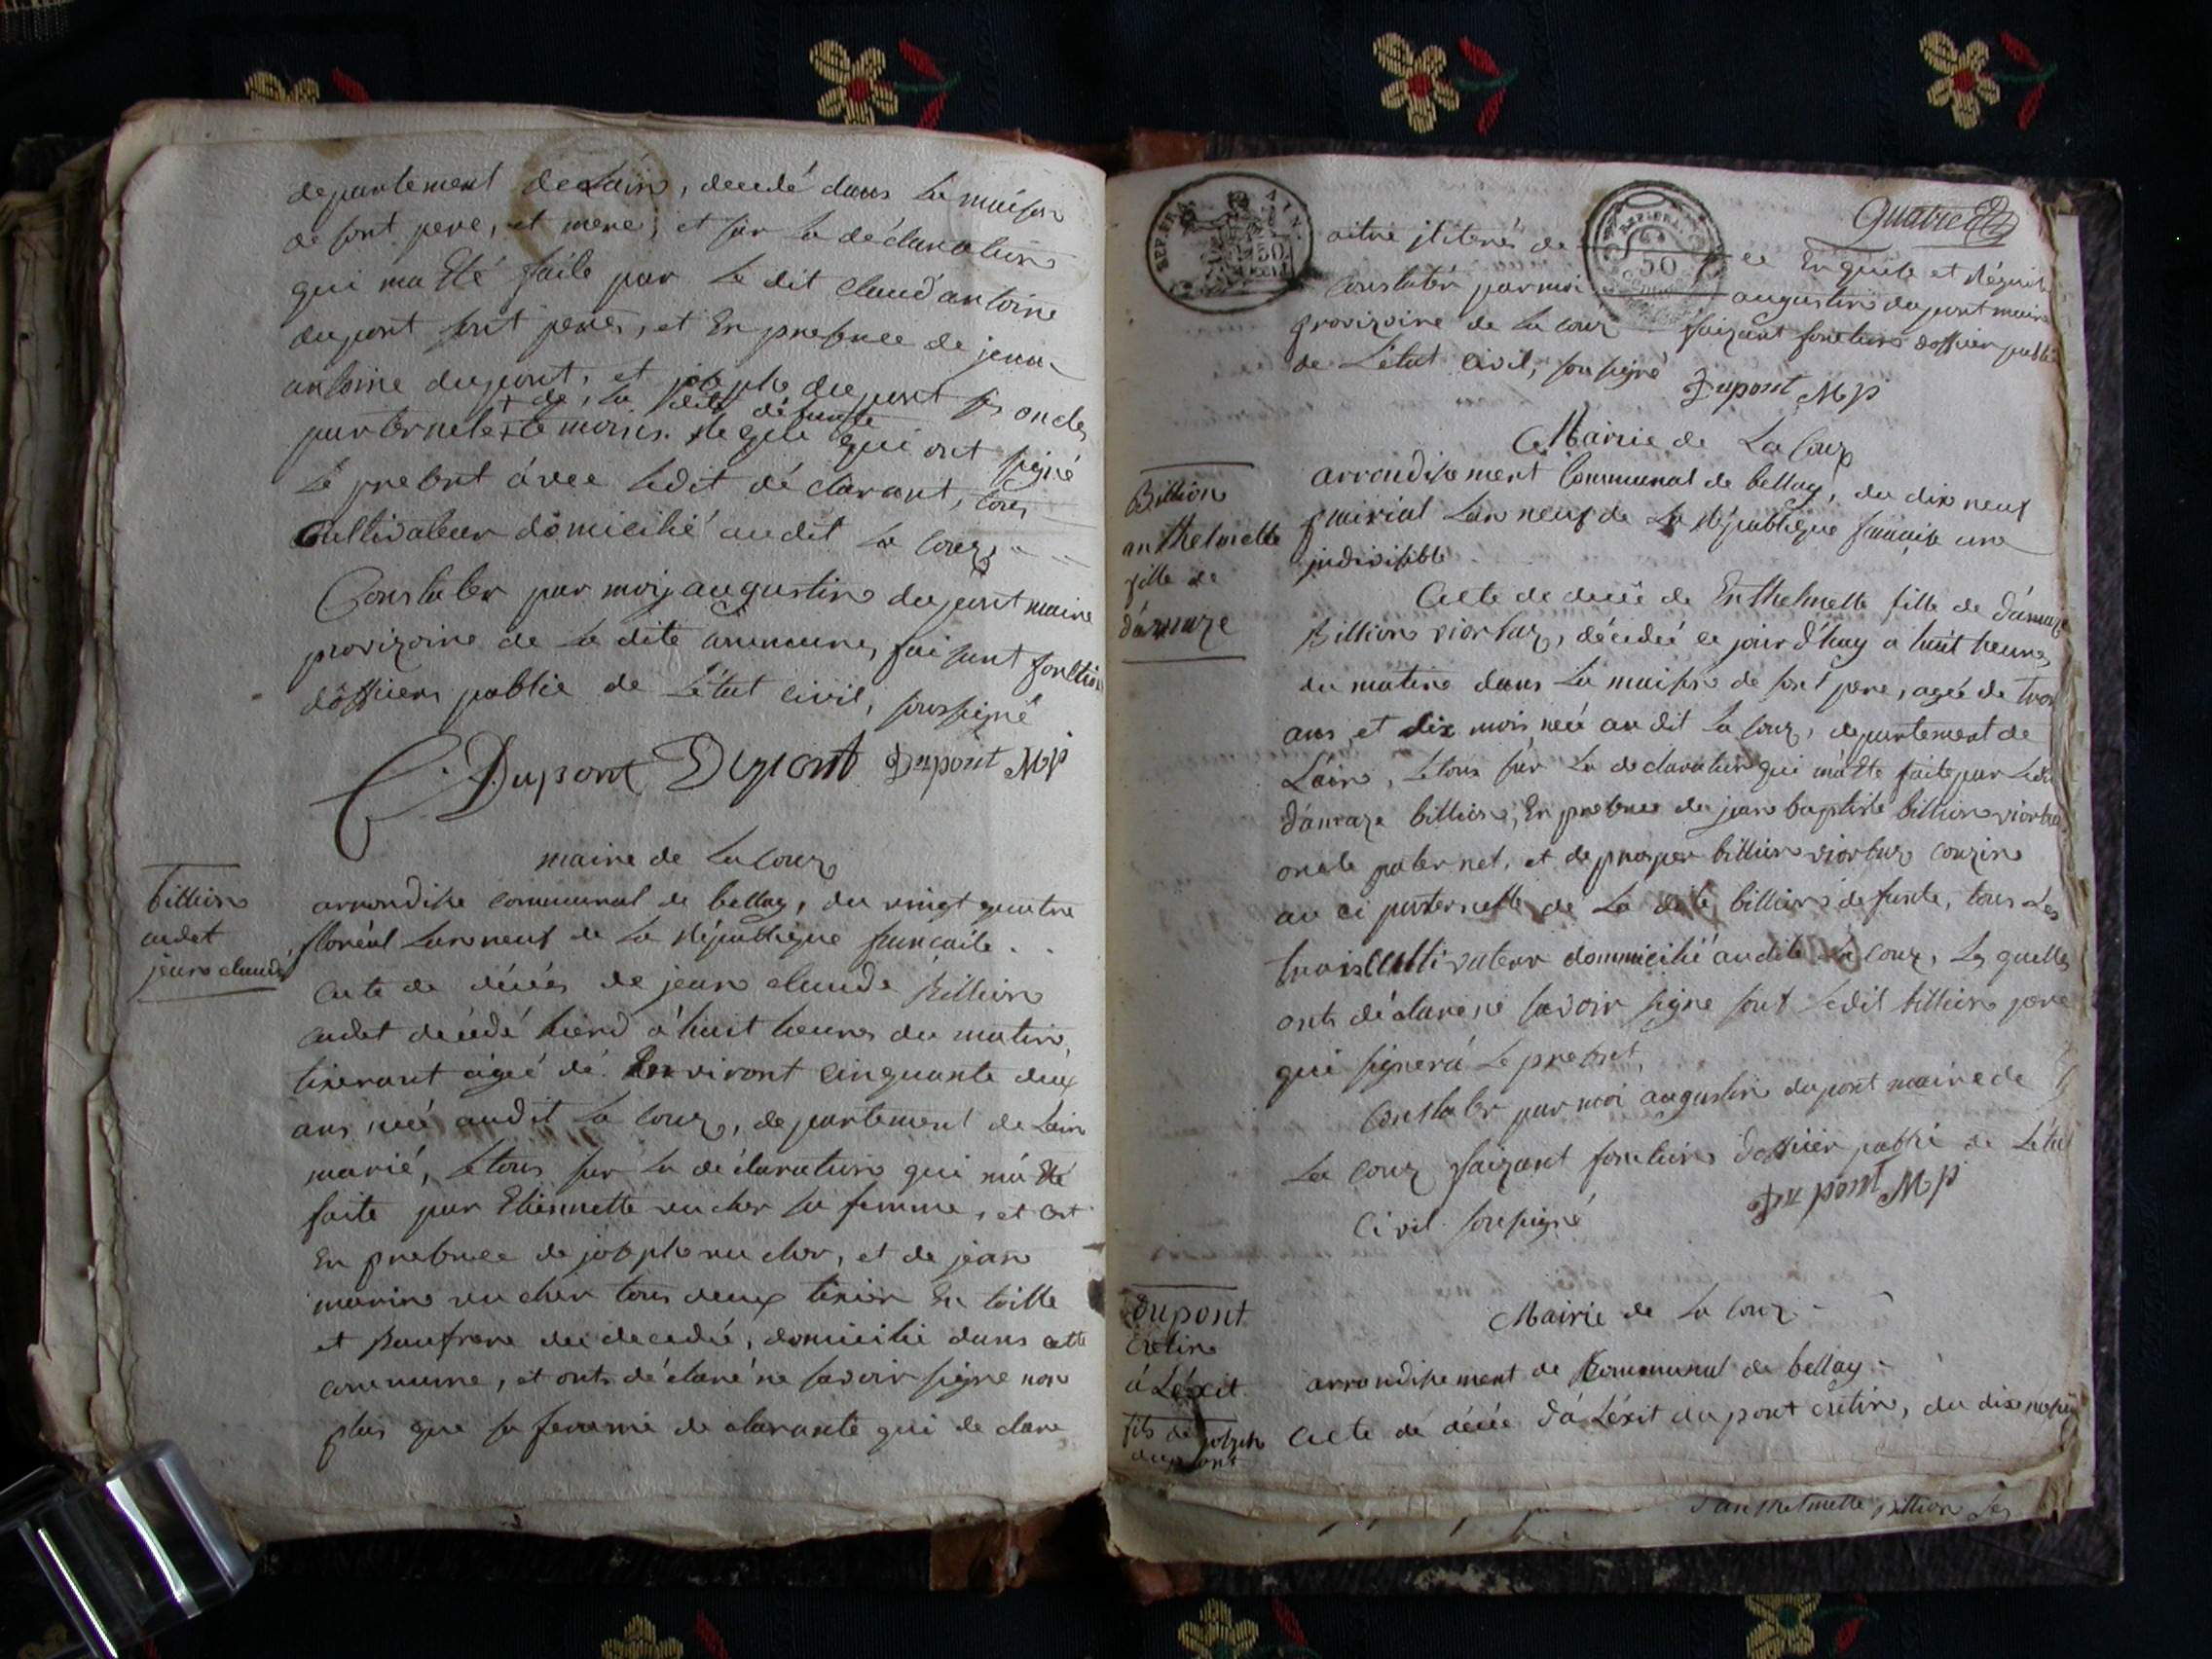 departement de Lain, decedé dans La maison
de sont pere, et mere; et sur La déclaration
qui ma Eté faite par Le dit Claud'antoine
dupont sont peres, et En presence de jean
antoine dupont, et joseph dupont ses oncles
+ de La dite défunte
paternele + temoins qui ont signé
Le present avec Ledit déclarant, tous
Cultivateur domicilié audit La Couz
Constater par moy augustin dupont maire
provizoire de La dite Commune, faisant fonction
dofficiers public de L'état civil, soussigné
C. Dupont Dupont Dupont MP
maire de La Couz
billion
cadet
jean claude
arrondisse communal de bellay, du vingt quatre
floréal Lan neuf de La République francaise
acte de décés de jean claude Billion
cadet decédé hierd à huit heures du matin,
tixerant agée dé Environt cinquante deux
ans neé audit La Couz, departement de Lain
marié, Letous sur La déclaration qui má Eté
faite par Etiennette rucher sa femme, et cest
En presence de joseph rucher, et de jean
marin rucher tous deux tixier En toille
et Beaufrere du decedée, domicilié dans cette
commune, et onts déclaré ne savoir signe non
plus que sa femme declarante qui de clare
quatre
REP. FRA. AIN.
50
aitre jlliterés de ce Enquite et Réquit
Constatér par moi augustin dupont maire
provizoire de La Couz faizant fonctions dofficier public
de L'état civil, sousigné
Dupont MP
Mairie de La Couz
Billion
anthelmette
fille de
dámaze
arrondissement Communal de bellay, du dix neuf
prairial Lan neuf de La République francaise une
indivisible
Acte de décée de Enthelmette fille de dámaze
Billion viortaz, décédée ce jour d'huy a huit heures
du matin dans La maison de sont pere, agée de trois
ans et dix mois neé au dit La Couz, departement de
L'ain, Letous sur La declaration qui má Eté faite par Ledit
dámaze billion, En presence de jean baptiste billion viortaz
oncle paternel, et de prosper billion viortaz couzin
au ci paternelle de La dite billion defunte, tous Les
trois Cultivateur dommicilié audit La Couz, Les quelles
onts déclaré né savoir signe sauf Ledit billion pere
qui signerá Le present
Constater par moi augustin dupont maire de
La Couz faizant fonctions dofficier public de L'état
Civil sousigné
Dupont MP
Mairie de La Couz
Dupont
cretin
á Léxit
fils de joseph
dupont
arrondissement de Communal de bellay
Acte dé décée d'á Léxit dupont cretin, du dix neuf
d'anthelmette billion Les